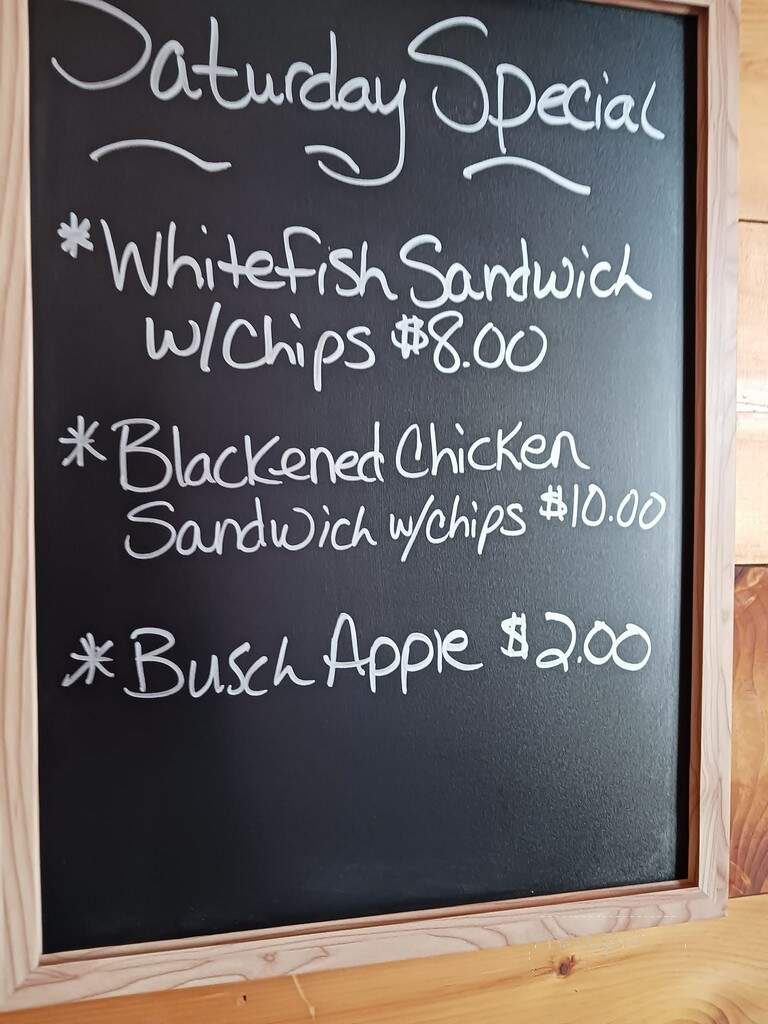 Saturday Special
* Whitefish Sandwich
w/chips $8.00
* Blackened Chicken
Sandwich w/chips $10.00
* Busch Apple $2.00